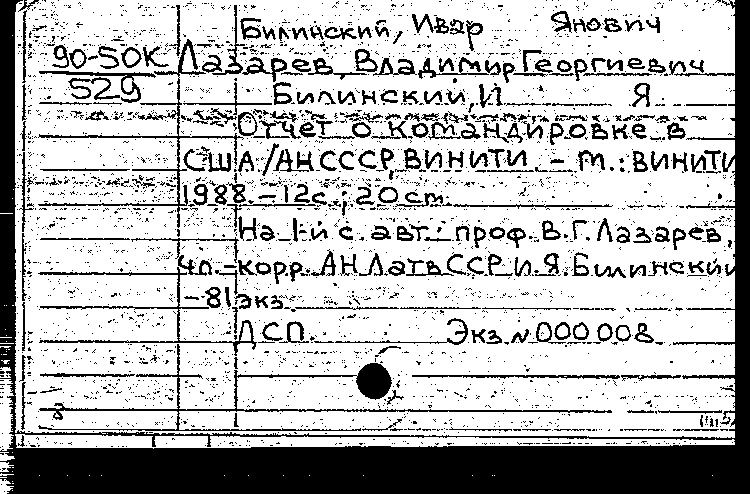 Билинский, Ивар Янович
90-50К Лазарев, Владимир Георгиевич
529 Билинский, И Я
Отчет о командировке в
США/АН СССР, ВИНИТИ. - М.: ВИНИТИ
1988. - 12с.; 20 cm.
На 1-й с. авт.: проф. В.Г. Лазарев,
чл.-корр. АН ЛатвССР И.Я. Билинский
- 81 экз.
ДСП. Экз. № 000008